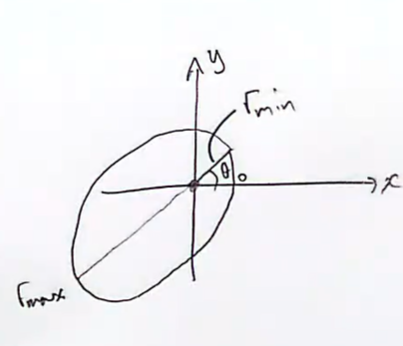 y
rmin
θo
x
rmax